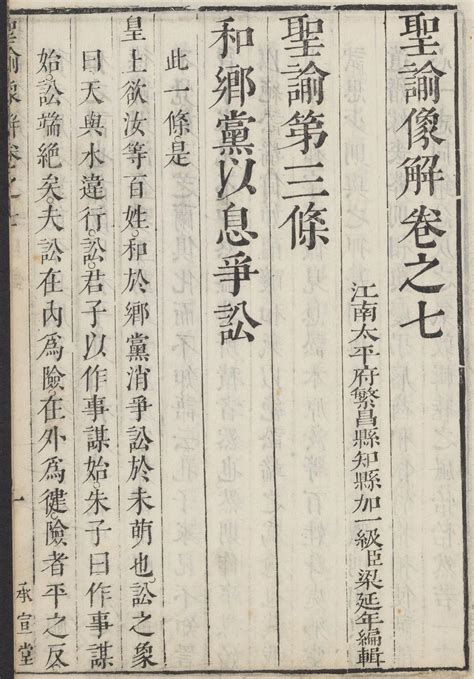 聖諭像解卷之七
江南太平府繁昌縣知縣加一級臣梁延年編輯
聖諭第三條
和鄉黨以息爭訟
此一條是
皇上欲汝等百姓和於鄉黨消爭訟於未萌也訟之象
曰天與水違行訟君子以作事謀始朱子曰作事謀
始訟端絕矣夫訟在內為險在外為健險者平之反
聖諭像解卷之七
一
承宣堂